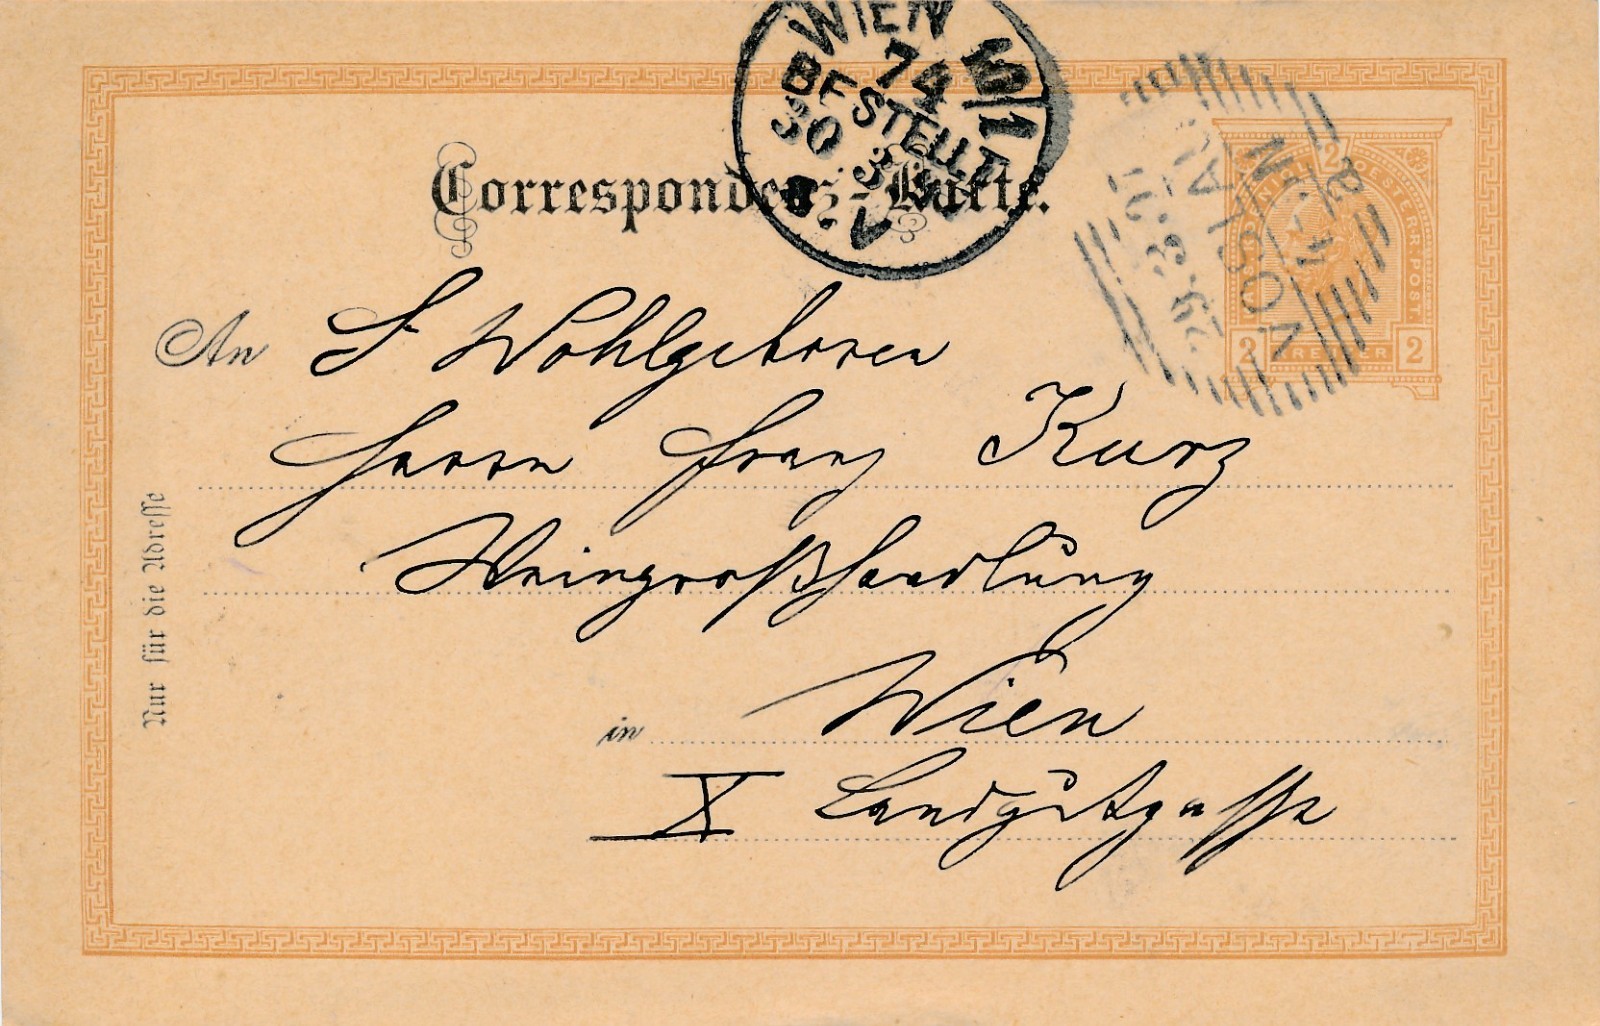 WIEN 10/1
74
BESTELLT
30 3
V
VÖSLAU
29.3.97
KOENIGL. OESTERR. POST.
2 KREUZER 2
Correspondenz-Karte.
An S Wohlgeboren
Herrn Franz Kurz
Weingroßhandlung
in Wien
X Landgutgasse
Nur für die Adresse